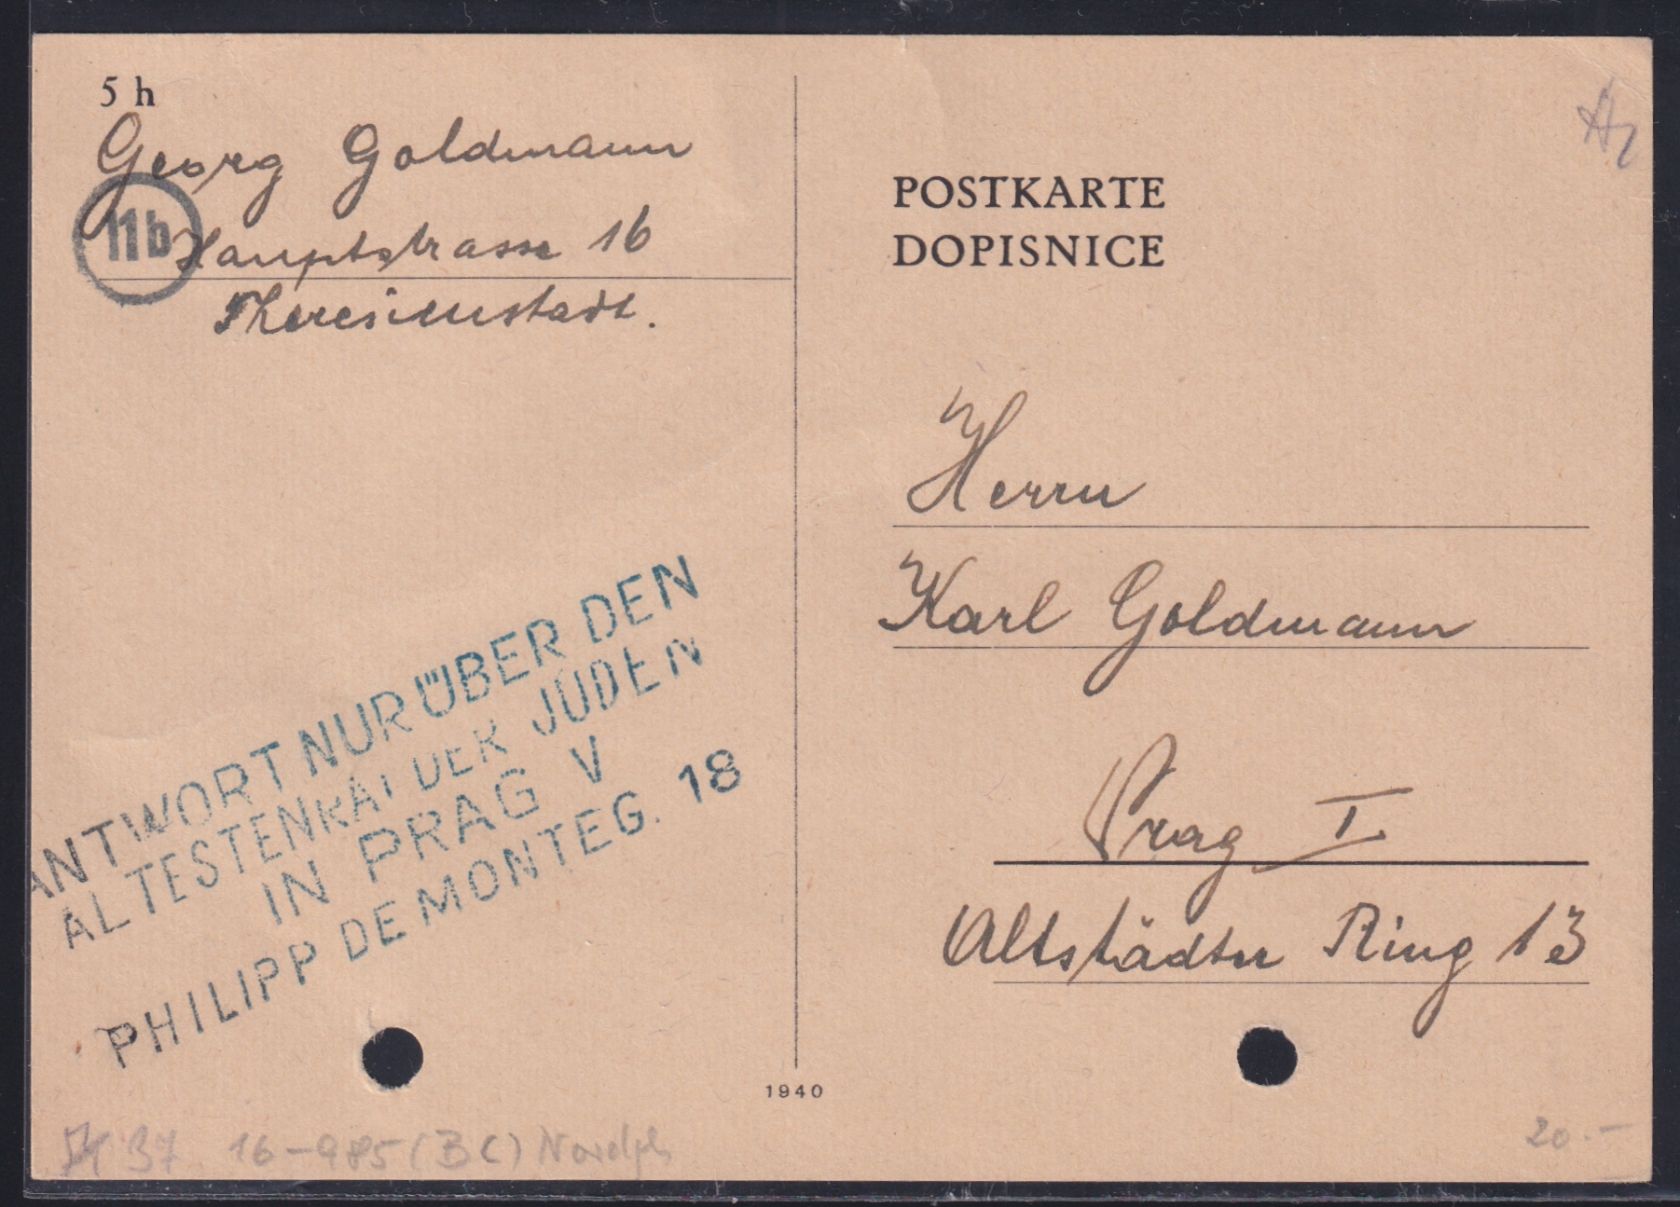 5 h
Georg Goldmann
11b
Hauptstrasse 16
Theresienstadt.
POSTKARTE
DOPISNICE
Herrn
Karl Goldmann
Prag I
Altstädter Ring 13
ANTWORT NUR ÜBER DEN
ALTESTENRAT DER JUDEN
IN PRAG V
PHILIPP DE MONTEG. 18
1940
37 16-985 (BC)
20.-